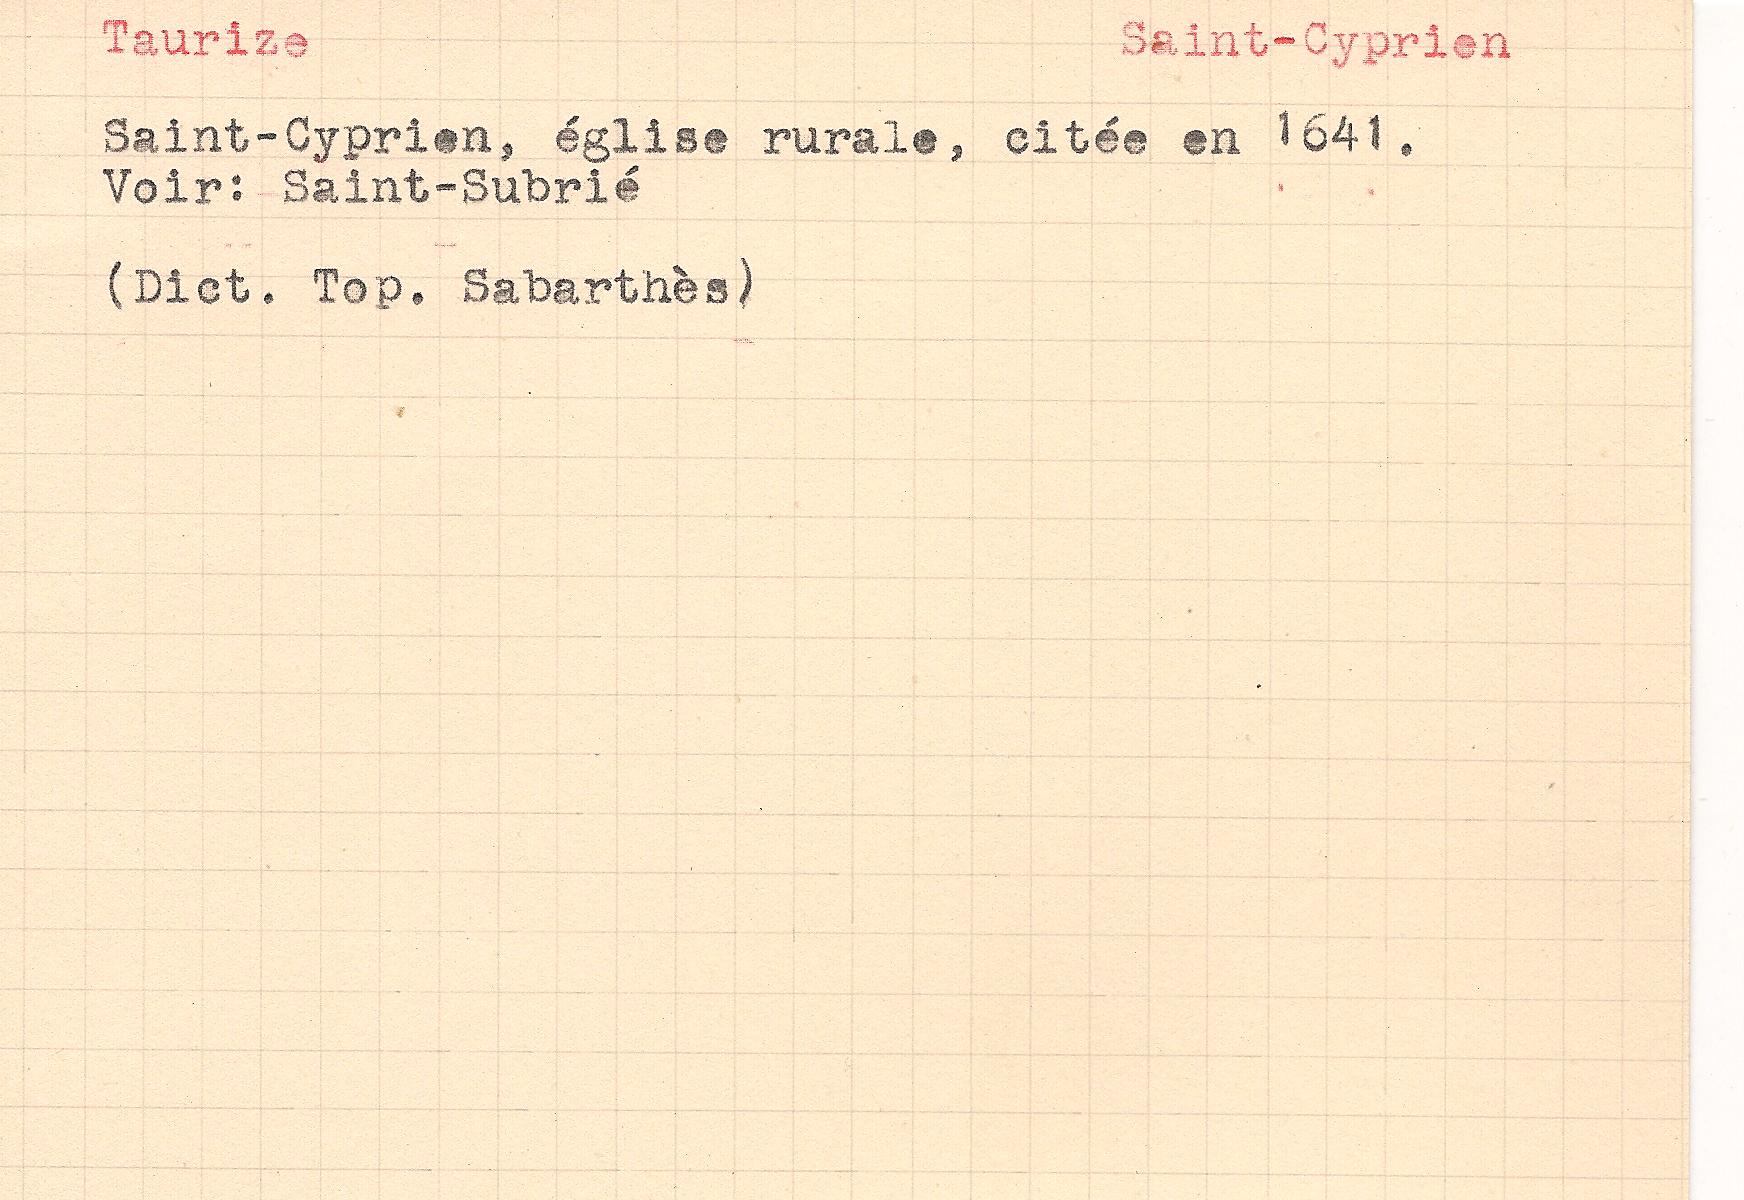 Taurize Saint-Cyprien
Saint-Cyprien, église rurale, citée en 1641.
Voir: Saint-Subrié
(Dict. Top. Sabarthès)